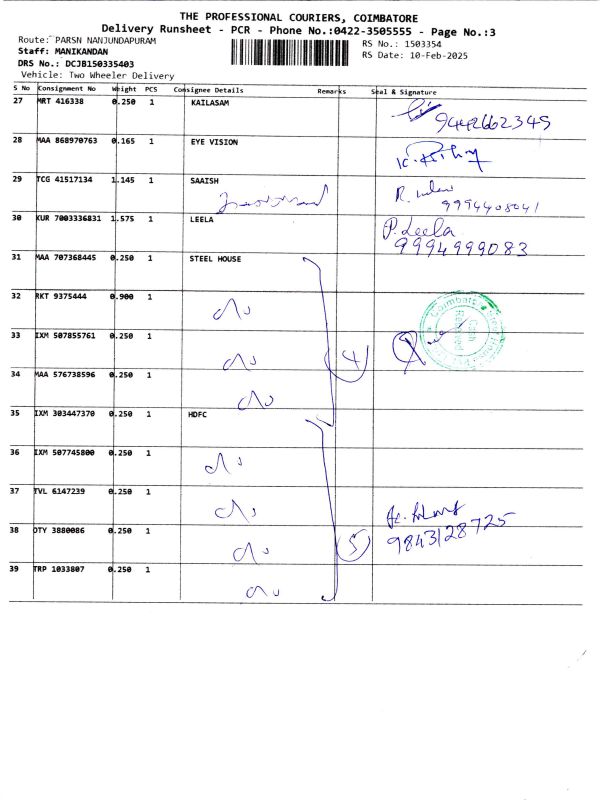 THE PROFESSIONAL COURIERS, COIMBATORE
Delivery Runsheet - PCR - Phone No.:0422-3505555 - Page No.:3
Route: PARSN NANJUNDAPURAM
RS No.: 1503354
Staff: MANIKANDAN
RS Date: 10-Feb-2025
DRS No.: DCJB150335403
Vehicle: Two Wheeler Delivery
S No Consignment No Weight PCS Consignee Details Remarks Seal & Signature
27 MRT 416338 0.250 1 KAILASAM
9442662349
28 MAA 868970763 0.165 1 EYE VISION
29 TCG 41517134 1.145 1 SAAISH
9994408041
30 KUR 7003336831 1.575 1 LEELA P. Leela
9994999083
31 MAA 707368445 0.250 1 STEEL HOUSE
32 RKT 9375444 0.900 1
33 IXM 507855761 0.250 1
4
34 MAA 576738596 0.250 1
35 IXM 303447370 0.250 1 HDFC
36 IXM 507745800 0.250 1
37 TVL 6147239 0.250 1
9843128725
38 OTY 3880086 0.250 1
5
39 TRP 1033807 0.250 1